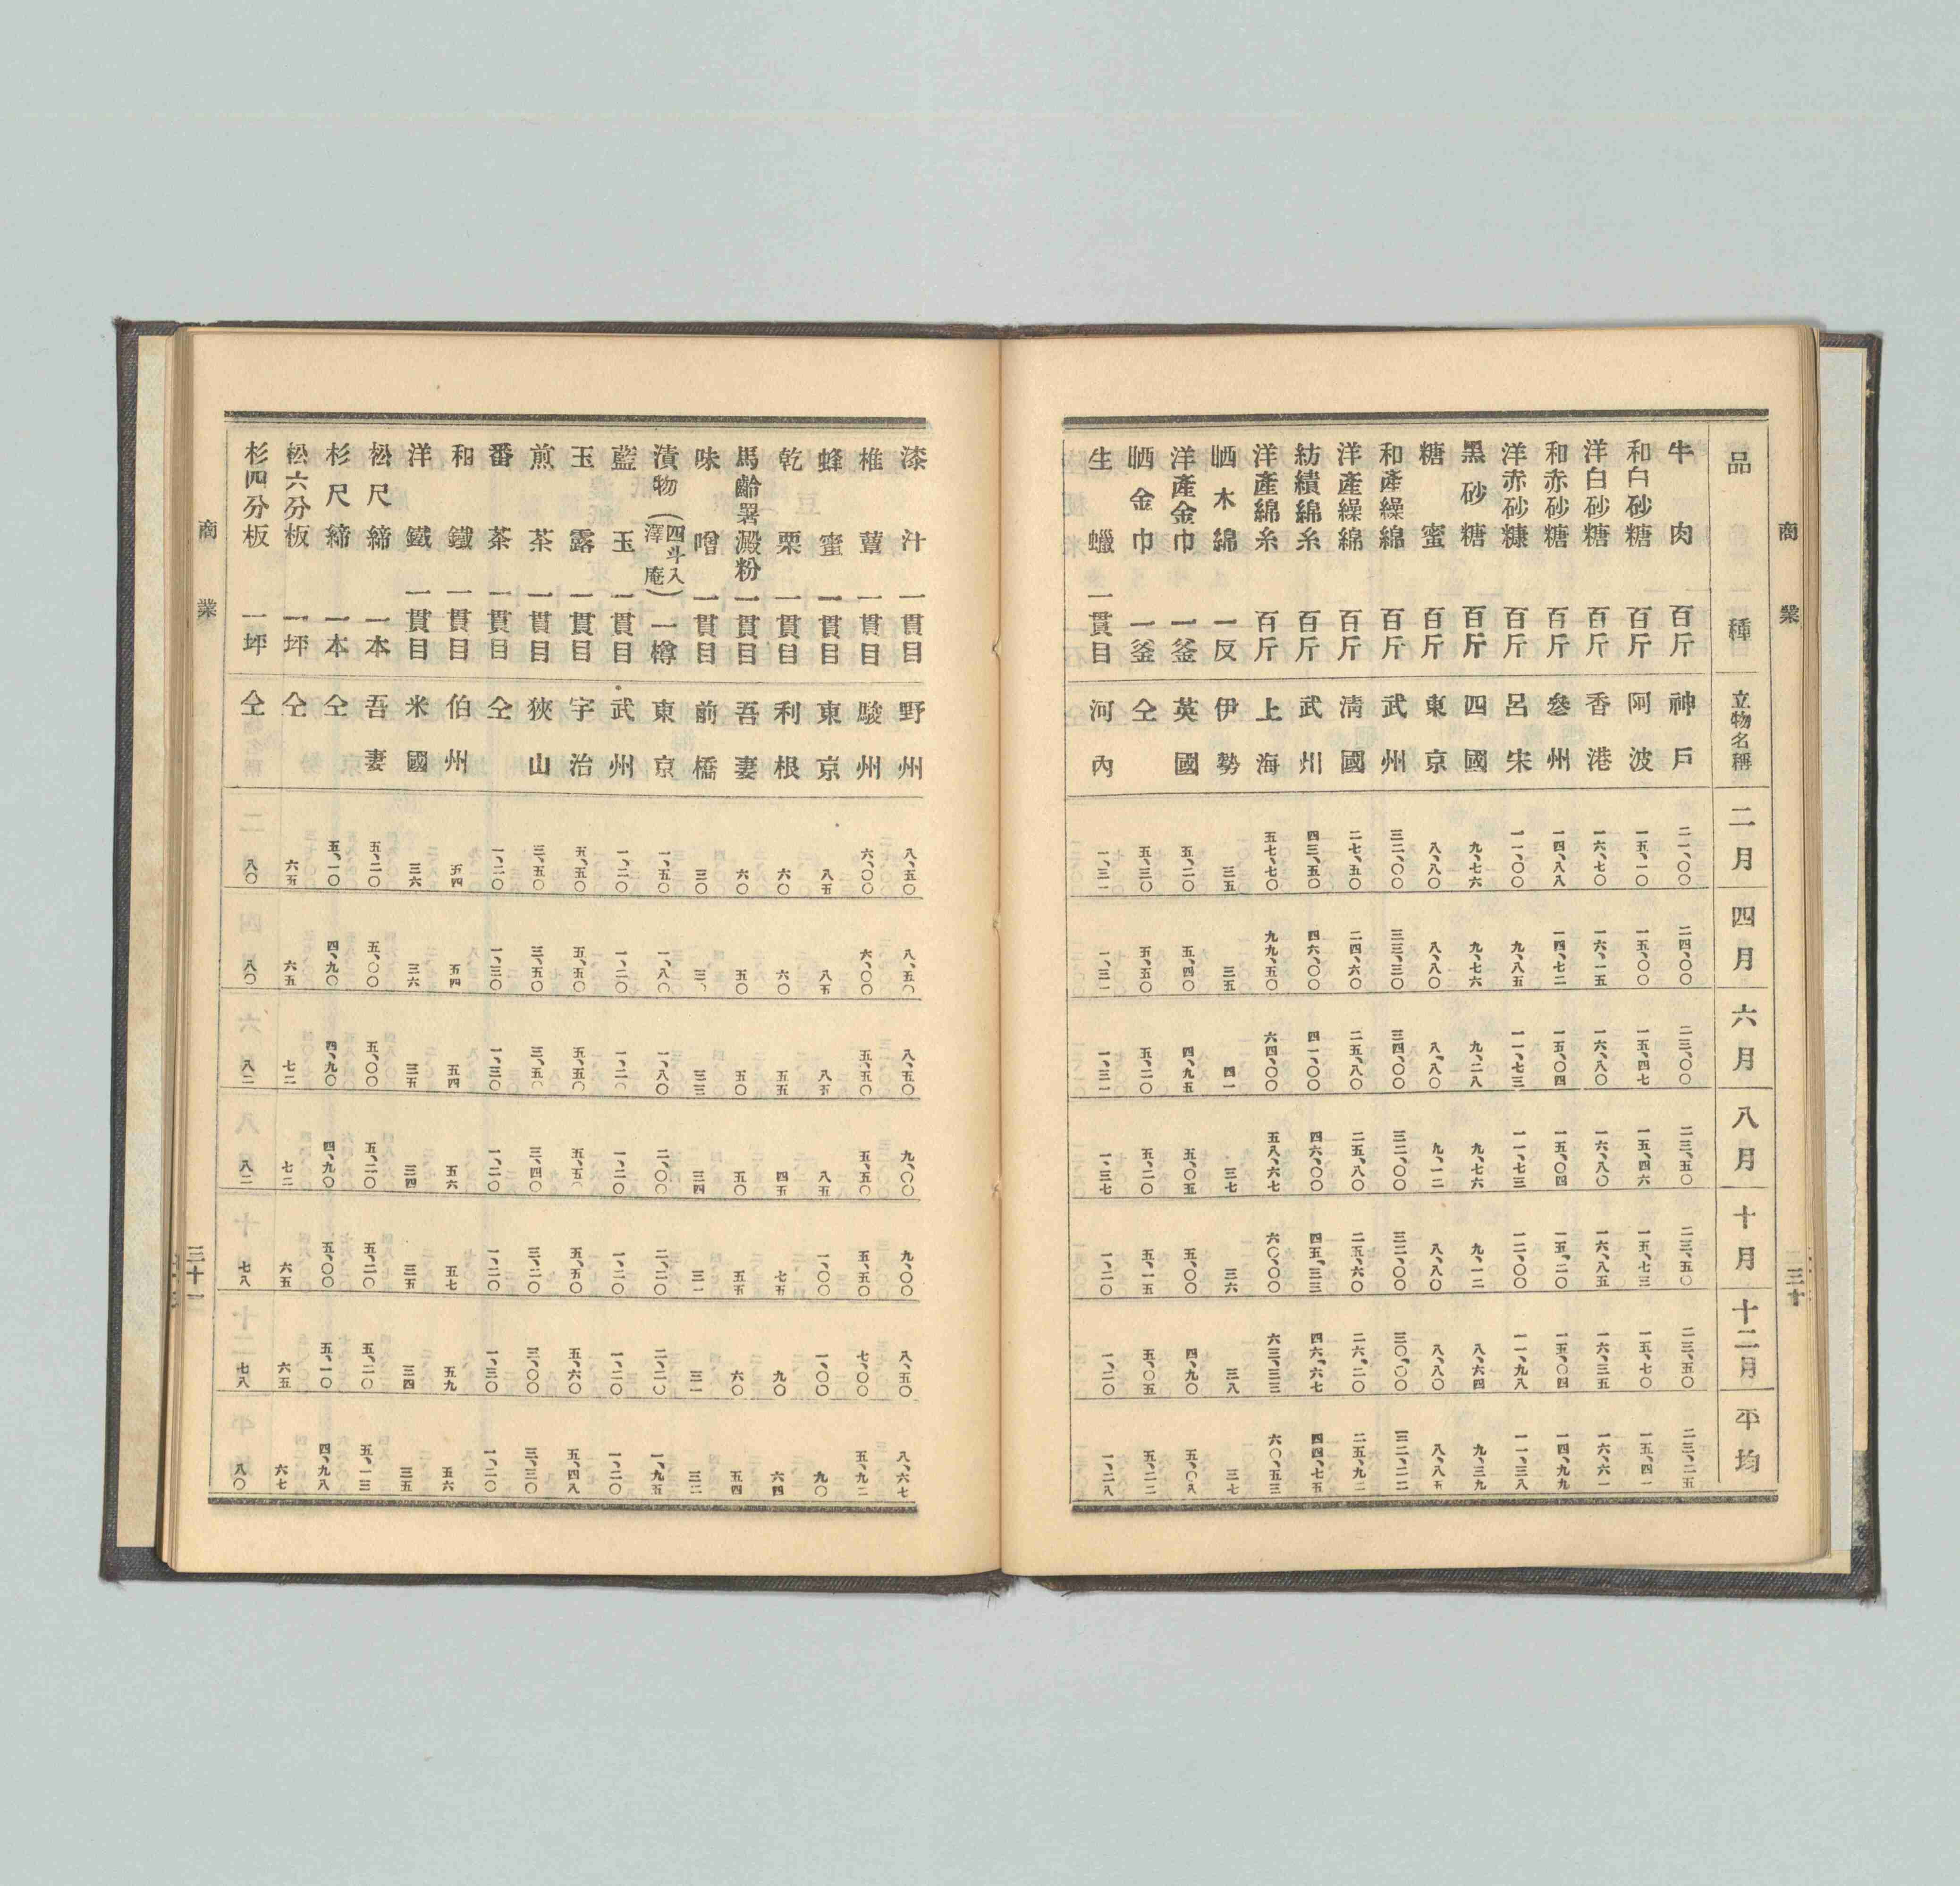 商業
三十
品種 立物名稱 二月 四月 六月 八月 十月 十二月 平均
牛肉 百斤 神戶 二一、〇〇 二四、〇〇 二三、〇〇 二三、五〇 二三、五〇 二三、五〇 二三、二五
和白砂糖 百斤 阿波 一五、一〇 一五、〇〇 一五、四七 一五、四六 一五、七三 一五、七〇 一五、四一
洋白砂糖 百斤 香港 一六、七〇 一六、一五 一六、八〇 一六、八〇 一六、八五 一六、三五 一六、六一
和赤砂糖 百斤 參州 一四、八八 一四、七二 一五、〇四 一五、〇四 一五、二〇 一五、〇四 一四、九九
洋赤砂糠 百斤 呂宋 一一、〇〇 九、八五 一一、七三 一一、七三 一二、〇〇 一一、九八 一一、三八
黑砂糖 百斤 四國 九、七六 九、七六 九、二八 九、七六 九、一二 八、六四 九、三九
糖蜜 百斤 東京 八、八〇 八、八〇 八、八〇 九、一二 八、八〇 八、八〇 八、八五
和產繰綿 百斤 武州 三二、〇〇 三三、三〇 三四、〇〇 三二、〇〇 三二、〇〇 三〇、〇〇 三二、二二
洋產繰綿 百斤 清國 二七、五〇 二四、六〇 二五、八〇 二五、八〇 二五、六〇 二六、二〇 二五、九二
紡績綿糸 百斤 武州 四三、五〇 四六、〇〇 四一、〇〇 四六、〇〇 四五、三三 四六、六七 四四、七五
洋產綿糸 百斤 上海 五七、七〇 九九、五〇 六四、〇〇 五八、六七 六〇、〇〇 六三、三三 六〇、五三
晒木綿 一反 伊勢 三五 三五 四一 三七 三六 三八 三七
洋產金巾 一釜 英國 五、二〇 五、四〇 四、九五 五、〇五 五、〇〇 四、九〇 五、〇八
晒金巾 一釜 仝 五、三〇 五、五〇 五、二〇 五、二〇 五、一五 五、〇五 五、二二
生蠟 一貫目 河內 一、三一 一、三一 一、三一 一、三七 一、二〇 一、二〇 一、二八
漆汁 一貫目 野州 八、五〇 八、五〇 八、五〇 九、〇〇 九、〇〇 八、五〇 八、六七
椎蕈 一貫目 駿州 六、〇〇 六、〇〇 五、五〇 五、五〇 五、五〇 七、〇〇 五、九二
蜂蜜 一貫目 東京 八五 八五 八五 八五 一、〇〇 一、〇〇 九〇
乾栗 一貫目 利根 六〇 六〇 五五 四五 七五 九〇 六四
馬齡署澱粉 一貫目 吾妻 六〇 五〇 五〇 五〇 五五 六〇 五四
味噌 一貫目 前橋 三〇 三、 三三 三四 三一 三一 三二
漬物(四斗入澤庵) 一樽 東京 一、五〇 一、八〇 一、八〇 二、〇〇 二、二〇 二、二〇 一、九五
藍玉 一貫目 武州 一、二〇 一、二〇 一、二〇 一、二〇 一、二〇 一、二〇 一、二〇
玉露 一貫目 宇治 五、五〇 五、五〇 五、五〇 五、五〇 五、五〇 五、六〇 五、四八
煎茶 一貫目 狹山 三、五〇 三、五〇 三、五〇 三、四〇 三、二〇 三、〇〇 三、三〇
番茶 一貫目 仝 一、二〇 一、三〇 一、三〇 一、二〇 一、二〇 一、三〇 一、二〇
和鐵 一貫目 伯州 五四 五四 五四 五六 五七 五九 五六
洋鐵 一貫目 米國 三六 三六 三五 三四 三五 三四 三五
松尺締 一本 吾妻 五、二〇 五、〇〇 五、〇〇 五、二〇 五、二〇 五、二〇 五、一三
杉尺締 一本 仝 五、一〇 四、九〇 四、九〇 四、九〇 五、〇〇 五、一〇 四、九八
松六分板 一坪 仝 六五 六五 七二 七二 六五 六五 六七
杉四分板 一坪 仝 八〇 八〇 八二 八二 七八 七八 八〇
商業
三十一